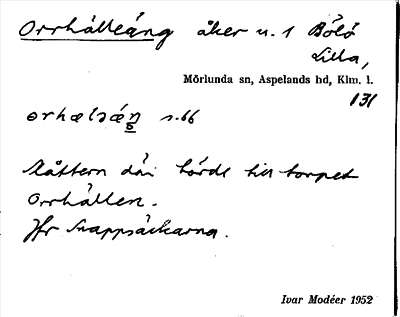 Orrhälleäng åker u. 1 Bölö
Lilla,
Mörlunda sn, Aspelands hd, Klm. l.
131
orhælǝæŋ s. 66
Slåttern där hörde till torpet
Orrhällen.
Jfr Snappsäckarna.
Ivar Modéer 1952